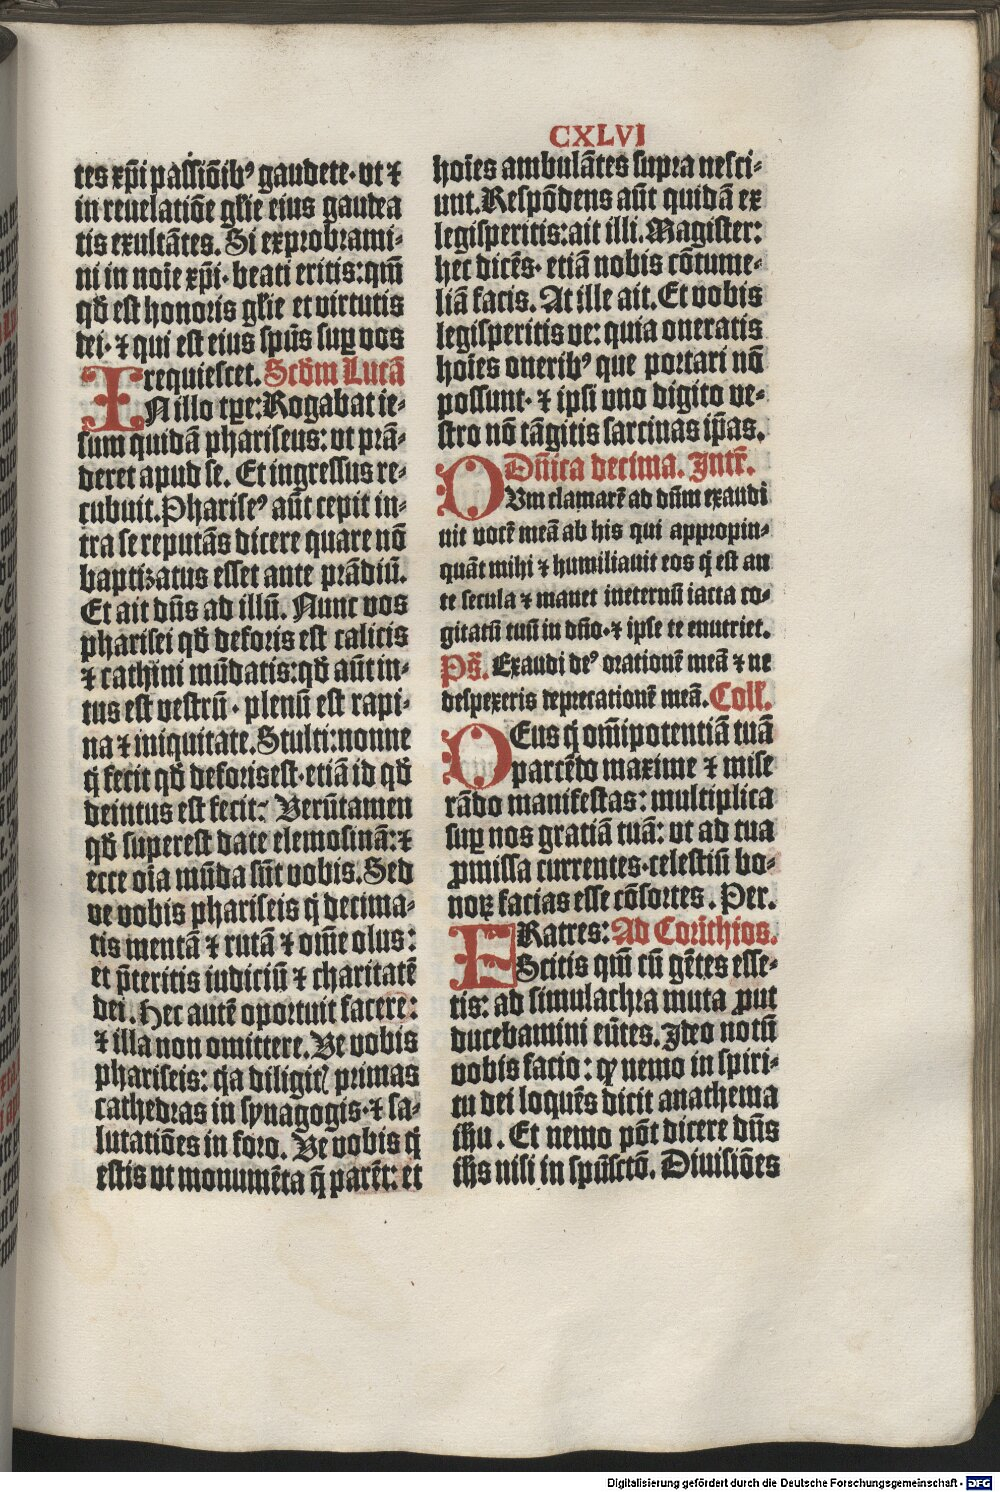 CXLVI
tes xp̄i passiōibꝰ gaudete· ut ⁊
in reuelatiōe gl̄ie eius gaudea
tis exultātes. Si exprobrami-
ni in noīe xp̄i· beati eritis: qm̄
qd̄ est honoris gl̄ie et virtutis
dei· ⁊ qui est eius spūs suꝑ vos
requiescet. Scd̄m Lucā
IN illo tꝑe: Rogabat ie-
sum quidā phariseus: ut prā-
deret apud se. Et ingressus re-
cubuit. Phariseꝰ aūt cepit in-
tra se reputās dicere quare nō
baptizatus esset ante prādiū.
Et ait dn̄s ad illū. Nunc vos
pharisei qd̄ deforis est calicis
⁊ cathini mūdatis: qd̄ aūt in-
tus est vestrū· plenū est rapi-
na ⁊ iniquitate. Stulti: nonne
q̄ fecit qd̄ deforis est· etiā id qd̄
deintus est fecit: Verūtamen
qd̄ superest date elemosinā: ⁊
ecce oīa mūda sūt vobis. Sed
ve vobis phariseis q̄ decima-
tis mentā ⁊ rutā ⁊ om̄e olus:
et p̄teritis iudiciū ⁊ charitatē
dei. Hec autē oportuit facere:
⁊ illa non omittere. Ve vobis
phariseis: q̄a diligit̄ primas
cathedras in synagogis· ⁊ sa-
lutatiōes in foro. Ve vobis q̄
estis ut monumēta q̄ parēt: et
hoīes ambulātes supra nesci-
unt. Respōdens aūt quidā ex
legisperitis: ait illi. Magister:
hec dicēs· etiā nobis cōtume-
liā facis. At ille ait. Et vobis
legisperitis ve: quia oneratis
hoīes oneribꝰ que portari nō
possunt· ⁊ ipsi uno digito ve-
stro nō tāgitis sarcinas ip̄as.
Dn̄ica decima. Intr̄.
DVm clamarē ad dn̄m exaudi
uit vocē meā ab his qui appropin-
quāt mihi ⁊ humiliauit eos q̄ est an
te secula ⁊ manet ineternū iacta co-
gitatū tuū in dn̄o· ⁊ ipse te enutriet.
Ps̄. Exaudi deꝰ orationē meā ⁊ ne
despexeris deprecationē meā. Coll̄.
DEus q̄ om̄ipotentiā tuā
parcēdo maxime ⁊ mise
rādo manifestas: multiplica
suꝑ nos gratiā tuā: ut ad tua
ꝓmissa currentes· celestiū bo-
noꝝ facias esse cōsortes. Per.
FRatres: Ad Corithios.
Scitis qm̄ cū gētes esse-
tis: ad simulachra muta ꝓut
ducebamini eūtes. Ideo notū
vobis facio: ꝙ nemo in spiri-
tu dei loquēs dicit anathema
ih̄u. Et nemo pōt dicere dn̄s
ih̄s nisi in spūsctō. Diuisiōes
Digitalisierung gefördert durch die Deutsche Forschungsgemeinschaft - DFG